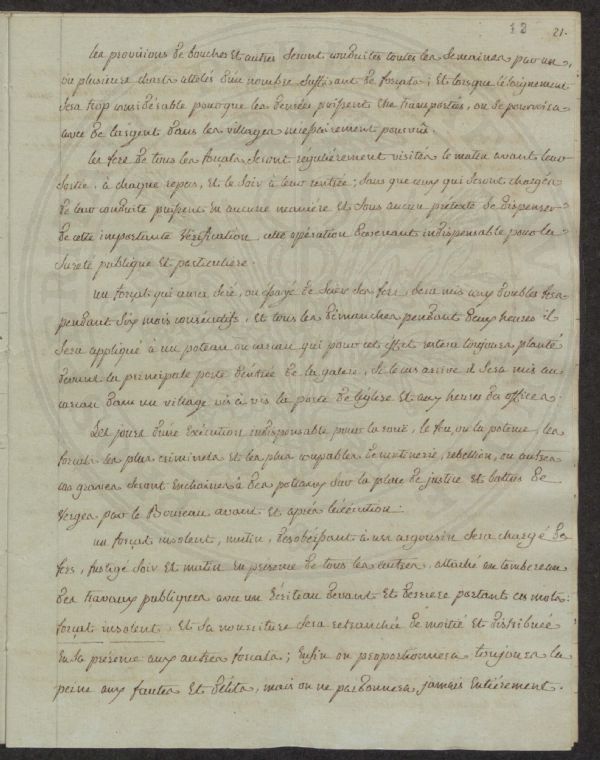 12 21.
les provisions de bouches Et autres Seront conduites toutes les Semaines par un,
ou plusieurs chariots attelés d'un nombre Suffisant de forçats; Et lorsque l'éloignement
Sera trop considérable pour que les denrées puissent être transportées, on Se pourvoira
avec de l'argent dans les villages nécessairement pourvus.
les fers de tous les forçats Seront régulièrement visités le matin avant leur
Sortie, à chaque repas, Et le Soir à leur rentrée; Sans que ceux qui Seront chargés
de leur conduite puissent En aucune manière Et Sous aucun prétexte Se dispenser
de cette importante Vérification, cette opération devenant indispensable pour la
Sureté publique Et particulière.
un forçat qui aura Scié, ou Essayé de Scier Ses fers, Sera mis aux doubles fers
pendant Six mois consécutifs, Et tous les dimanches pendant deux heures il
Sera appliqué à un poteau ou carcan qui pour cet effet restera toujours planté
devant la principale porte d'entrée de la galere, Si le cas arrive il Sera mis au
carcan dans un village vis à vis la porte de l'église Et aux heures des offices.
Les jours d'une Exécution indispensable pour la roue, le feu, ou la potence, les
forçats les plus criminels Et les plus coupables de mutinerie, rebellion, ou autres
cas graves Seront Enchainés à des poteaux Sur la place de justice Et battus de
Verges par le Boureau avant Et après l'éxécution.
un forçat insolent, mutin, désobéissant à un argousin Sera chargé de
fers, fustigé Soir Et matin En présence de tous les autres, attaché au tombereau
des travaux publiques avec un Ecriteau devant Et derriere portant ces mots:
forçat insolent. Et Sa nourriture Sera retranchée de moitié Et distribuée
En Sa présence aux autres forçats; Enfin on proportionnera toujours la
peine aux fautes Et délits, mais on ne pardonnera jamais Entiérement.